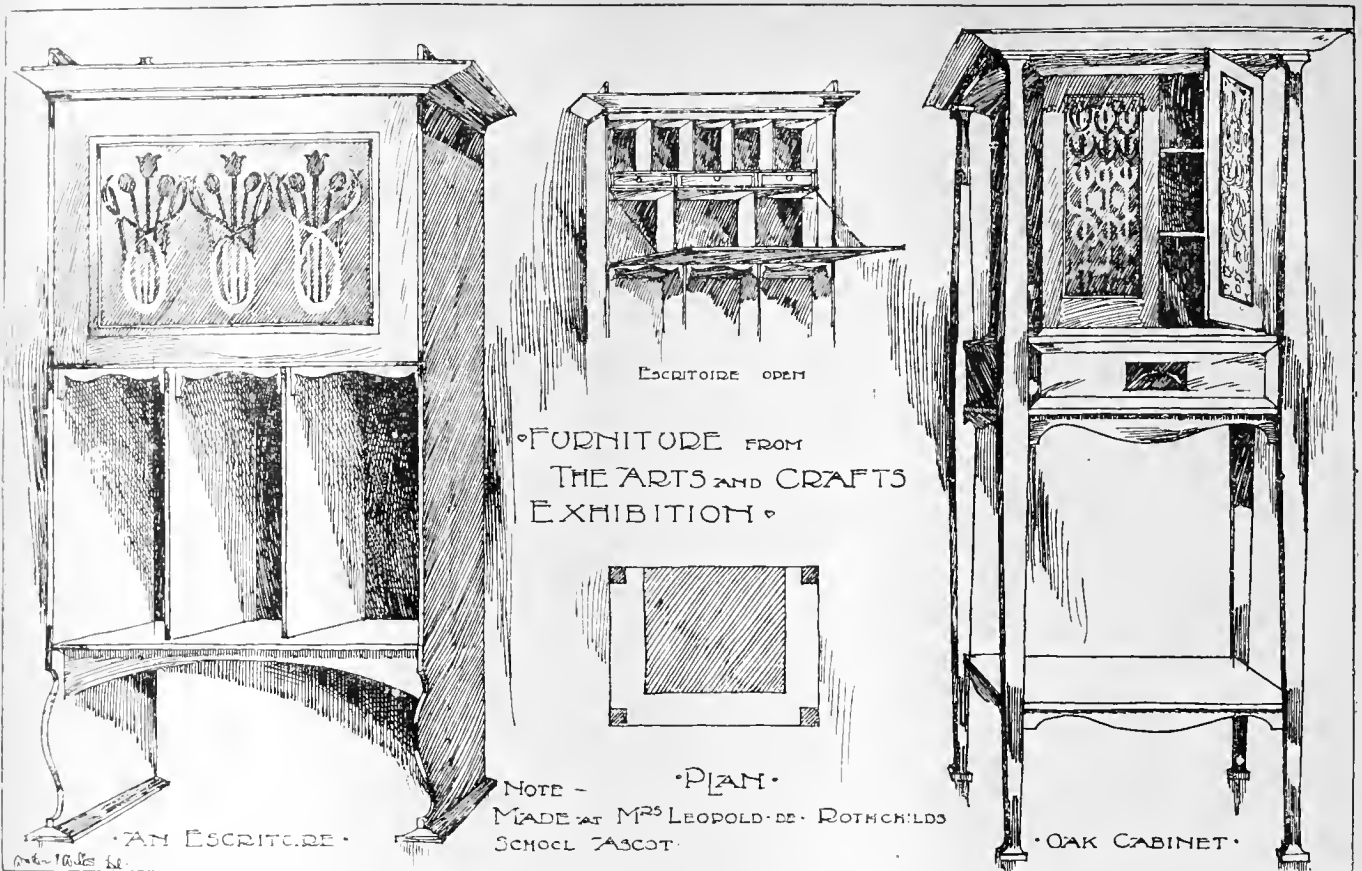 ESCRITOIRE OPEN
FURNITURE FROM
THE ARTS AND CRAFTS
EXHIBITION
·PLAN·
NOTE -
MADE AT MRS LEOPOLD·DE·ROTHCHILDS
SCHOOL ASCOT·
·AN ESCRITORE·
·OAK CABINET·